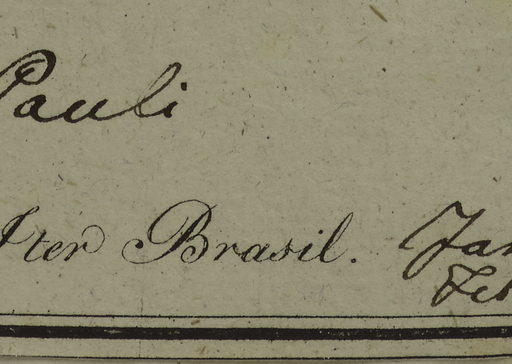 Pauli
Iter Brasil. Jan
Feb